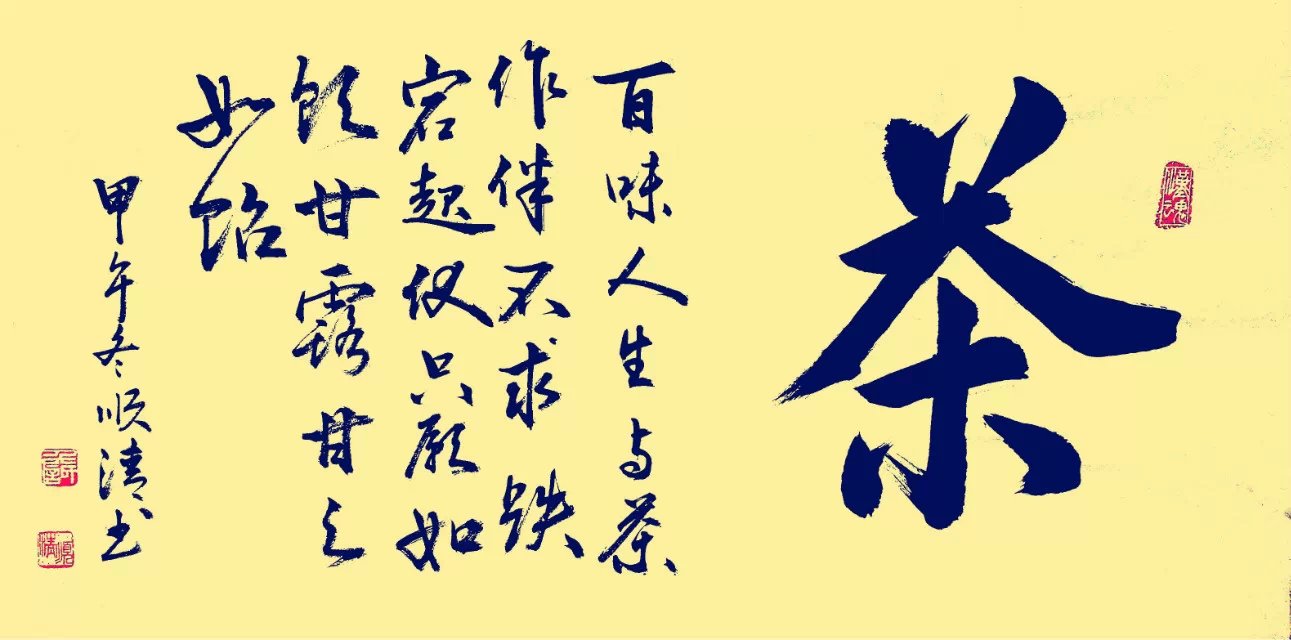 漢魂
茶
百味人生与茶
作伴不求跌
宕起伏只愿如
饮甘露甘之
如饴
甲午冬顺清书